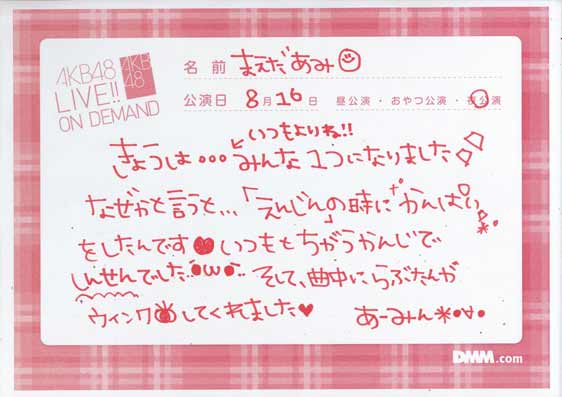 AKB48
LIVE!!
ON DEMAND
AKB
48
名前 まえだあみ
公演日 8月16日 昼公演・おやつ公演・夜公演
いつもよりね!!
きょうしょ•••みんな1つになりました
なぜかと言うと…「えんじん」の時に"かんぱい"
をしたんです♥いつもとちがうかんじで
しんせんでした•ω•そして、曲中にらぶたんが
ウィンクしてくれました♥ あーみん*•v•
DMM.com